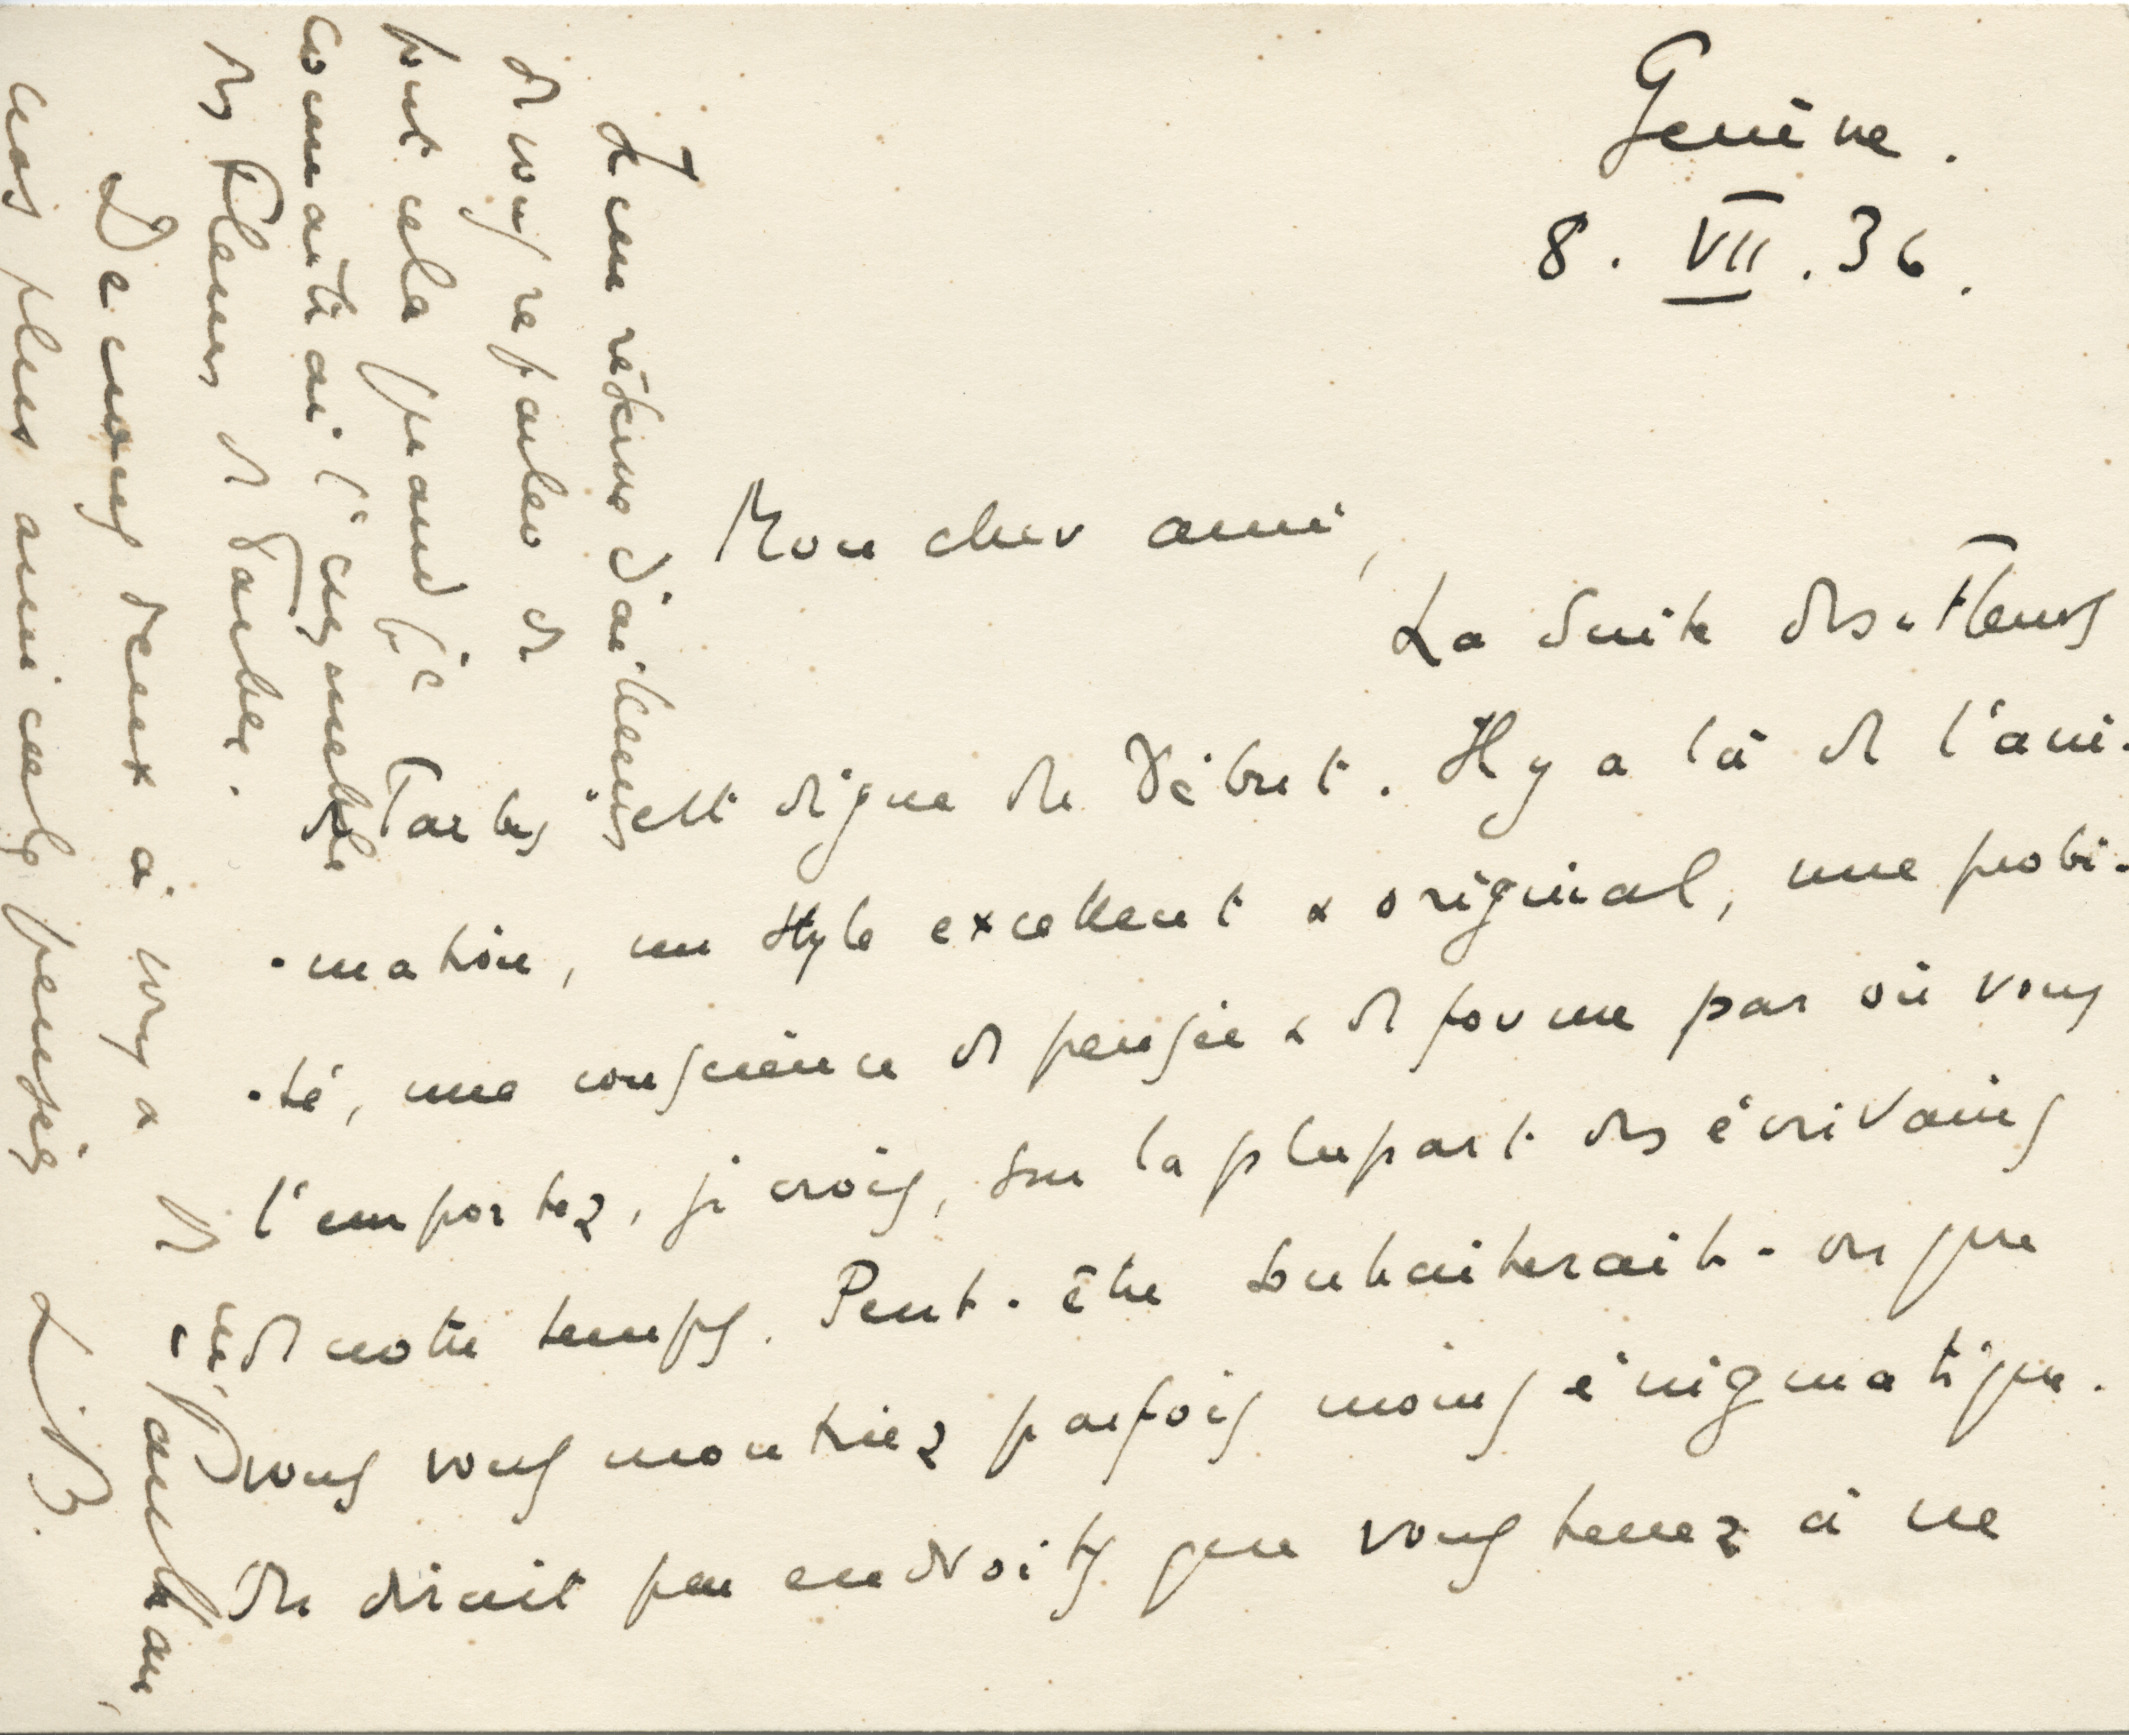 Genève.
8. VII. 36.
Mon cher ami,
La suite des "Fleurs
de Tarbes" est digne du début. Il y a là de l'ani-
-mation, un style excellent & original, une probi-
-té, une conscience de pensée & de forme par où vous
l'emportez, je crois, sur la plupart des écrivains
de notre temps. Peut-être souhaiterait-on que
vous vous montriez parfois moins énigmatique.
On dirait par endroits que vous tenez à ne
Je me réserve d'ailleurs
de vous reparler de
tout cela quand je
connaîtrai l'ensemble
des Fleurs de Tarbes.
De nous deux à vous &
à Paulhan,
nos plus amicales pensées
L.B.